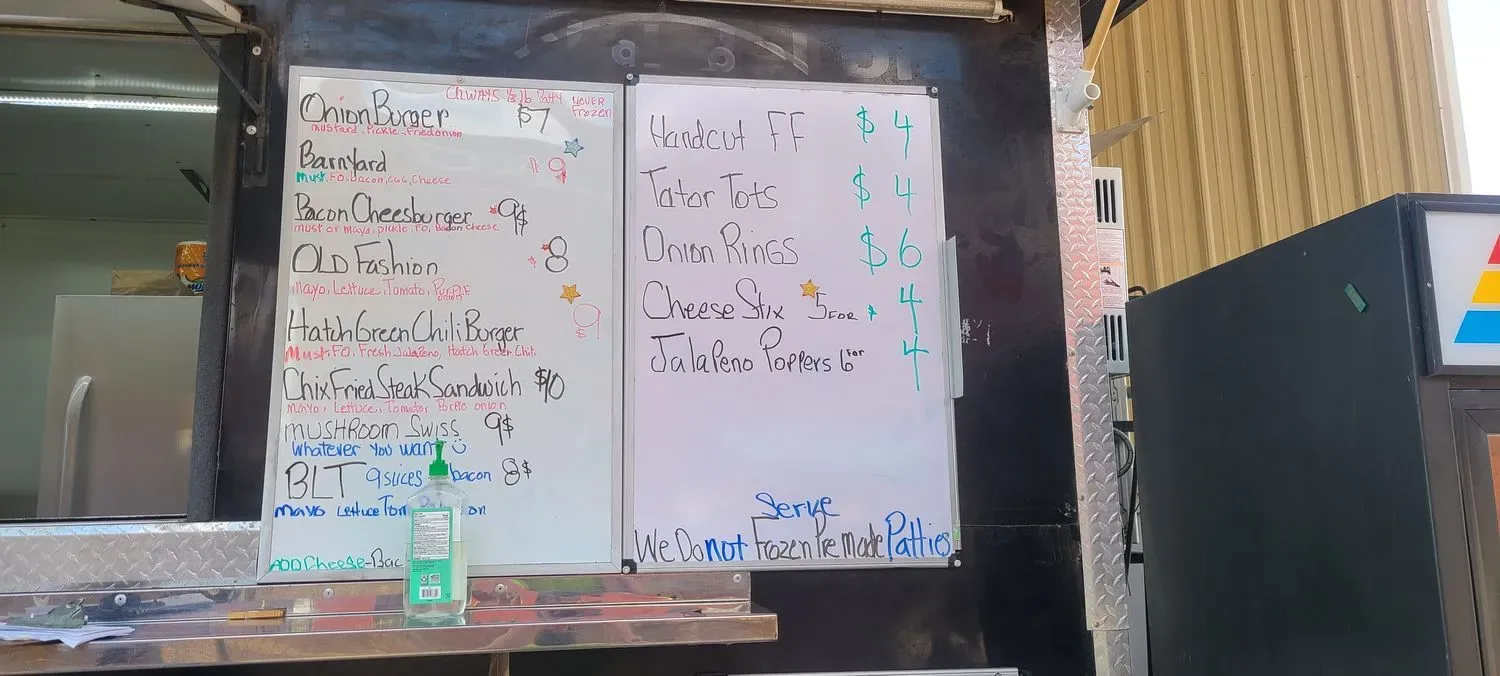 Always 1/3 lb Patty Never Frozen
Onion Burger $7
mustard, Pickle, Fried onion
Barnyard $9
Must. FO. bacon, egg, Cheese
Bacon Cheesburger 9$
must or Mayo, pickle, FO, Bacon Cheese
OLD Fashion $8
Mayo, Lettuce, Tomato, Purple onion
Hatch Green Chili Burger $9
Must. FO, Fresh Jalapeno, Hatch Green Chili
Chix Fried Steak Sandwich $10
Mayo, Lettuce, Tomato, Purple onion
MUSHROOM SWISS 9$
Whatever You want
BLT 9 slices bacon 8$
Mayo Lettuce Tom on
ADD Cheese-Bac
Handcut FF $4
Tator Tots $4
Onion Rings $6
Cheese Stix 5 FOR $4
Jalapeno Poppers 6 for 4
Serve
We Do not Frozen Pre made Patties